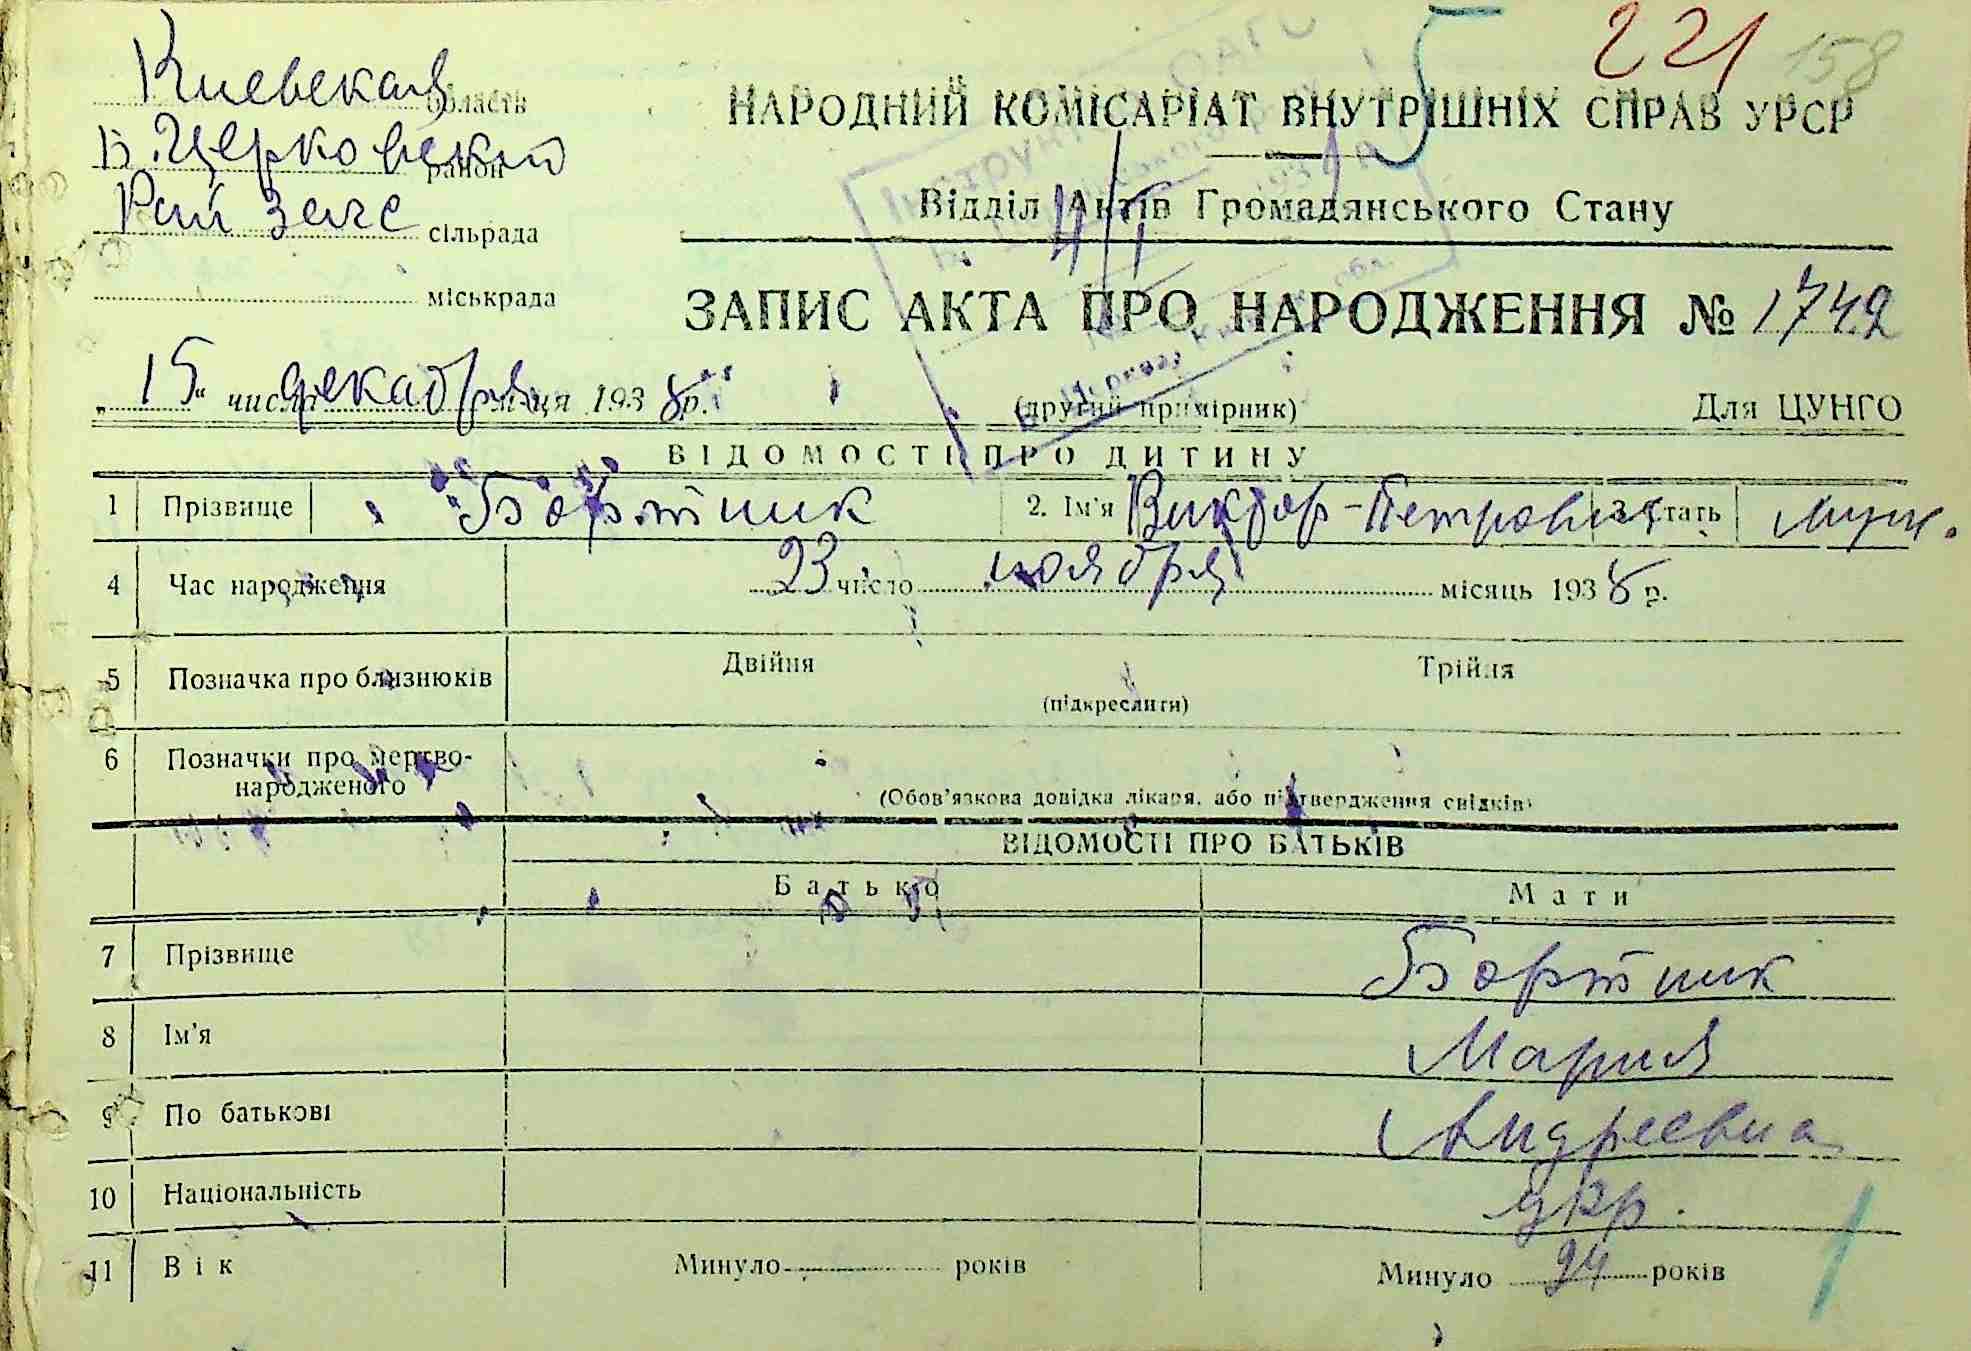 221 158
Киевская область
Б. Церковский район
Рай Загс сільрада
міськрада
НАРОДНИЙ КОМІСАРІАТ ВНУТРІШНІХ СПРАВ УРСР
Відділ Актів Громадянського Стану
ЗАПИС АКТА ПРО НАРОДЖЕННЯ № 1742
„15“ числа декабря м-ця 1938 р.
(другий примірник)
Для ЦУНГО
ВІДОМОСТІ ПРО ДИТИНУ
1 Прізвище Бортник 2. Ім'я Виктор-Петрович 3. Стать муж.
4 Час народження 23 число ноября місяць 1938 р.
5 Позначка про близнюків Двійня Трійня
(підкреслити)
6 Позначки про мертво-
народженого
(Обов'язкова довідка лікаря, або підтвердження свідків)
ВІДОМОСТІ ПРО БАТЬКІВ
Батько Мати
7 Прізвище Бортник
8 Ім'я Мария
9 По батькові Андреевна
10 Національність укр.
11 Вік Минуло років Минуло 24 років